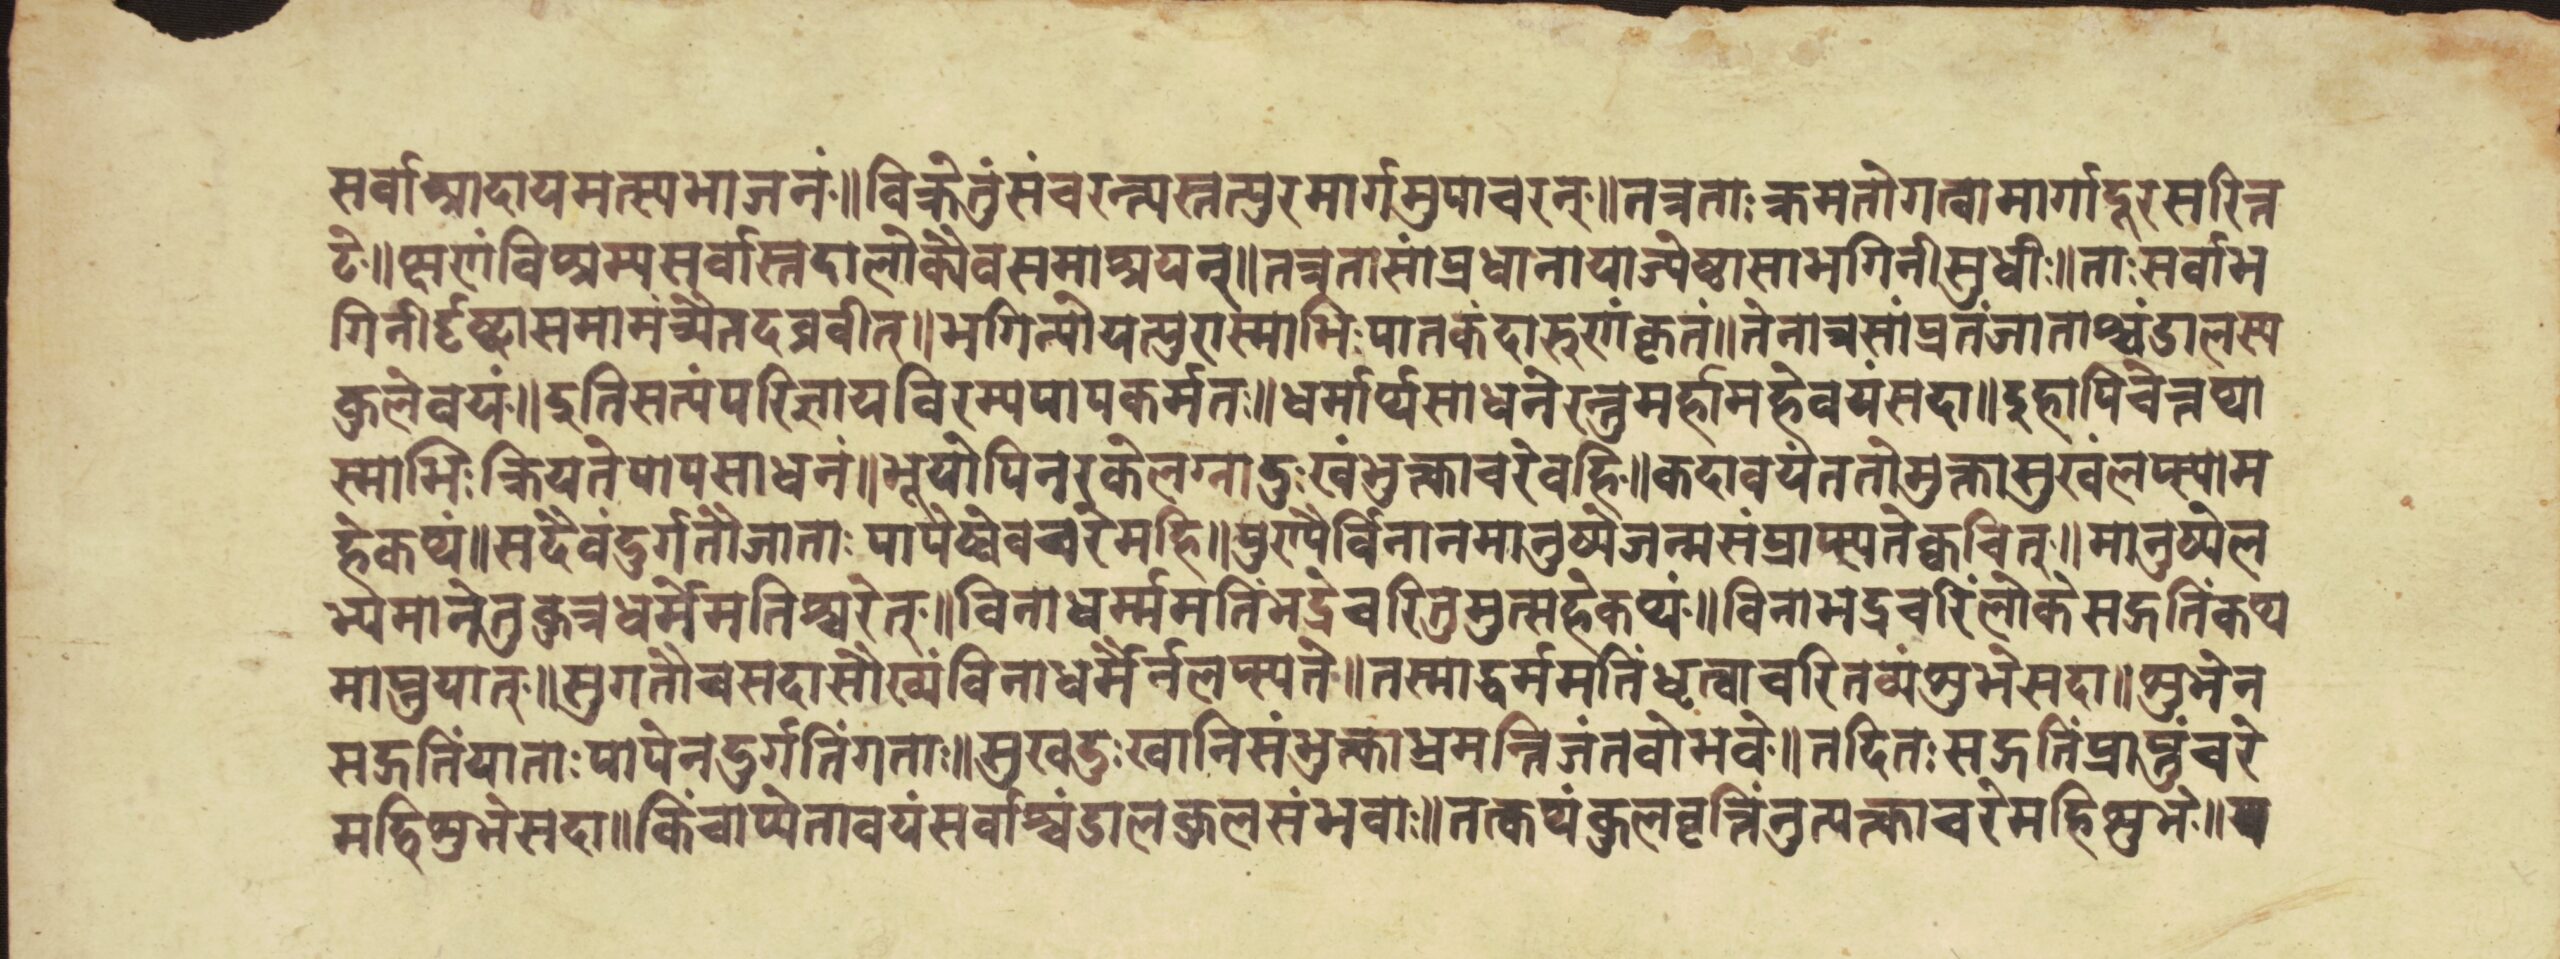 सर्वा आदायमत्स्यभाजनं॥विक्रेतुंसंचरन्त्यस्तत्पुरमार्गमुपाचरन्॥तत्रताःक्रमतोगत्वामार्गाद्दूरसरित्त
टे॥क्षणंविश्रम्यसर्वास्तदालोक्यैवसमाश्रयन्॥तत्रतासांप्रधानायाज्येष्ठासाभगिनीसुधीः॥ताःसर्वाभ
गिनीर्दृष्ट्वासमामंत्र्यैतदब्रवीत्॥भगिन्योयत्पुरास्माभिःपातकंदारुणंकृतं॥तेनात्रसांप्रतंजाताश्चंडालस्य
कुलेवयं॥इतिसत्यंपरिज्ञायविरम्यपापकर्मतः॥धर्मार्थसाधनेरन्तुमर्हामहेवयंसदा॥इहापिचेत्तथा
स्माभिःक्रियतेपापसाधनं॥भूयोपिनरकेलग्नादुःखंभुक्त्वाचरेवहि॥कदावयंततोमुक्तासुखंलप्स्याम
हेकथं॥सदैवंदुर्गतौजाताः पापेष्वेवचरेमहि॥पुण्यैर्विनानमानुष्येजन्मसंप्राप्स्यतेक्वचित्॥मानुष्येल
भ्यमानेतुकुत्रधर्मेमतिश्चरेत्॥विनाधर्म्ममतिंभद्रेचरितुमुत्सहेकथं॥विनाभद्रचरिंलोकेसद्गतिंकथ
माप्नुयात्॥सुगतौचसदासौख्यंविनाधर्मैर्नलप्स्यते॥तस्माद्धर्ममतिंधृत्वाचरितव्यंशुभेसदा॥शुभेन
सद्गतिंयाताःपापेनदुर्गतिंगताः॥सुखदुःखानिसंभुक्त्वाभ्रमन्तिजंतवोभवे॥तदितःसद्गतिंप्राप्तुंचरे
महिशुभेसदा॥किंचाप्येतावयंसर्वाश्चंडालकुलसंभवाः॥तत्कथंकुलवृत्तिंनुत्यक्त्वाचरेमहिशुभे॥